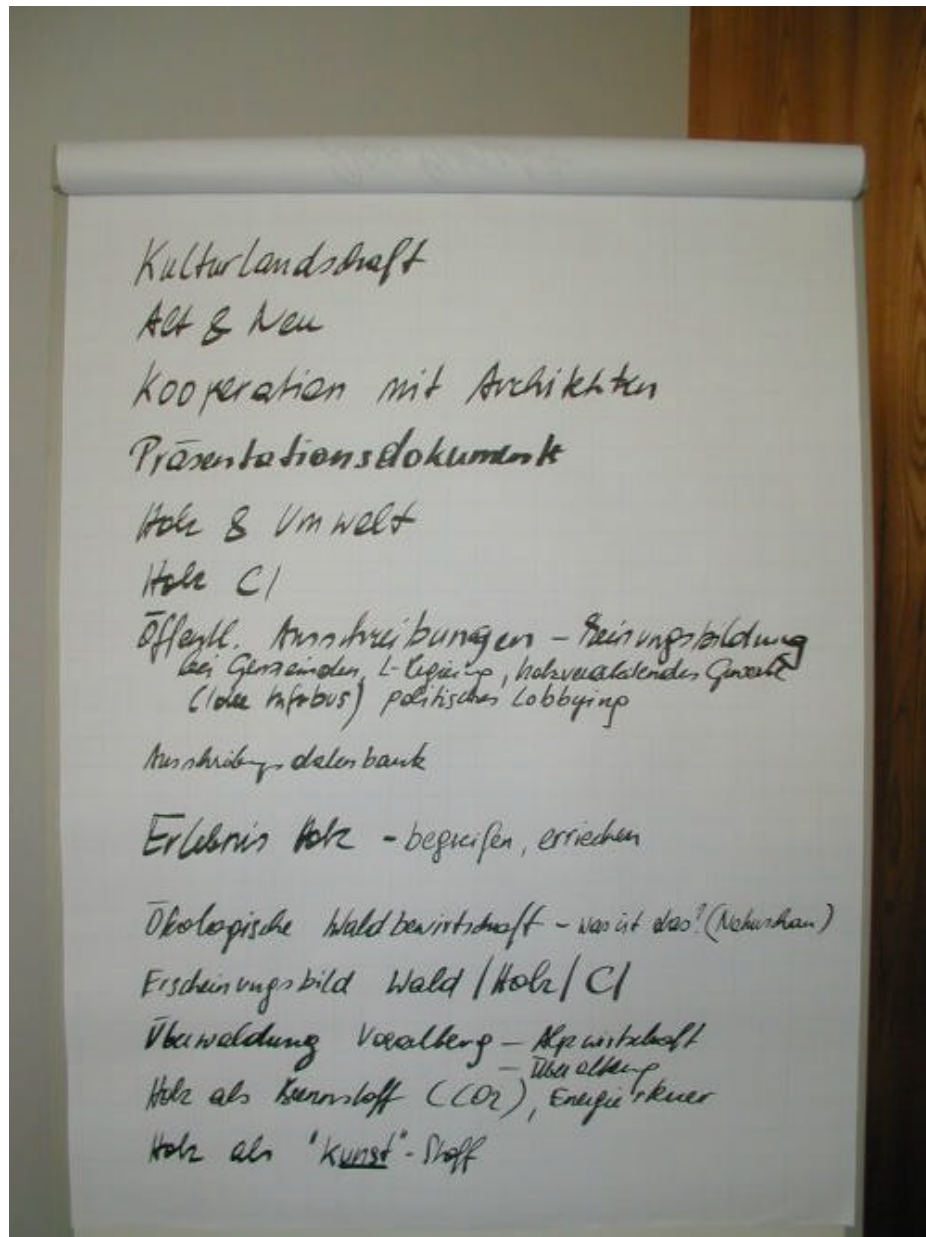 Kulturlandschaft
Alt & Neu
Kooperation mit Architekten
Präsentationsdokumente
Holz & Umwelt
Holz CI
Öffentl. Ausschreibungen - Meinungsbildung
bei Gemeinden, L-Regierung, holzverarbeitendes Gewerbe
(Idee Infobus) politisches Lobbying
Ausschreibungsdatenbank
Erlebnis Holz - begreifen, erriechen
Ökologische Waldbewirtschaft - was ist das? (Naturschau)
Erscheinungsbild Wald / Holz / CI
Überwaldung Vorarlberg - Alpwirtschaft
- Überalterung
Holz als Brennstoff (CO2), Energiesteuer
Holz als "Kunst"-Stoff